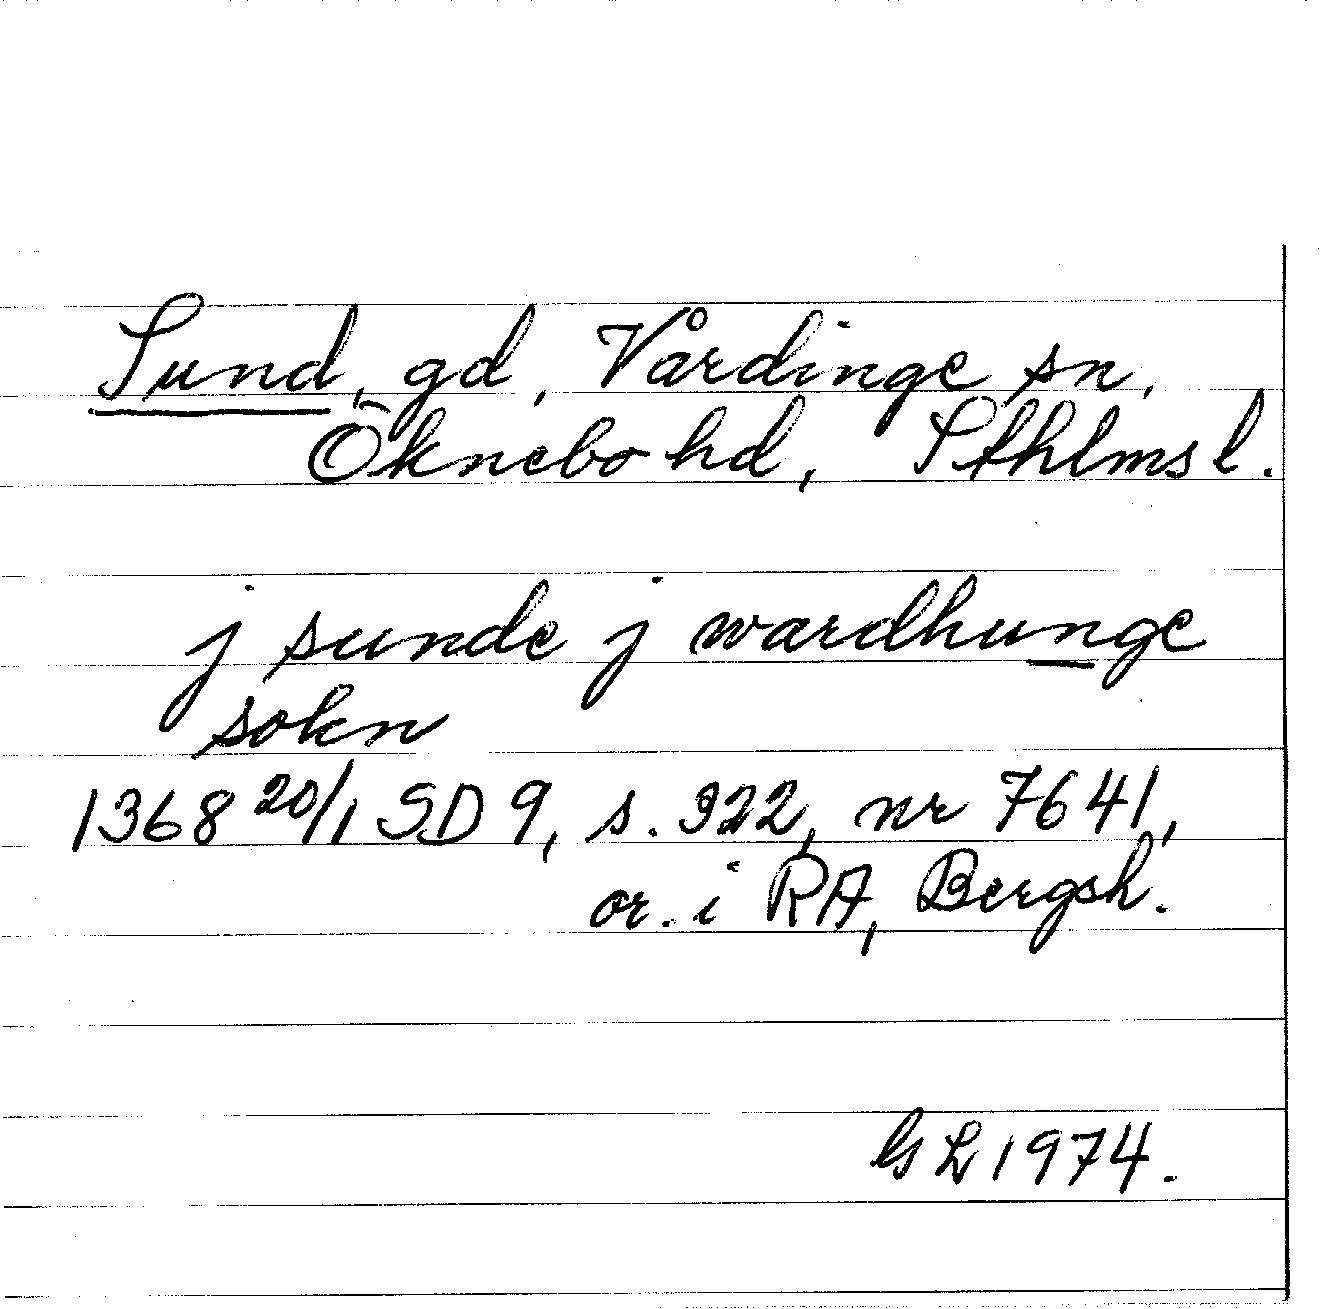 Sund, gd, Vårdinge sn,
Öknebo hd, Sthlms l.
j sunde j wardhunge
sokn
1368 20/1 SD 9, s. 322, nr 7641,
or. i RA, Bergsh.
GL 1974.